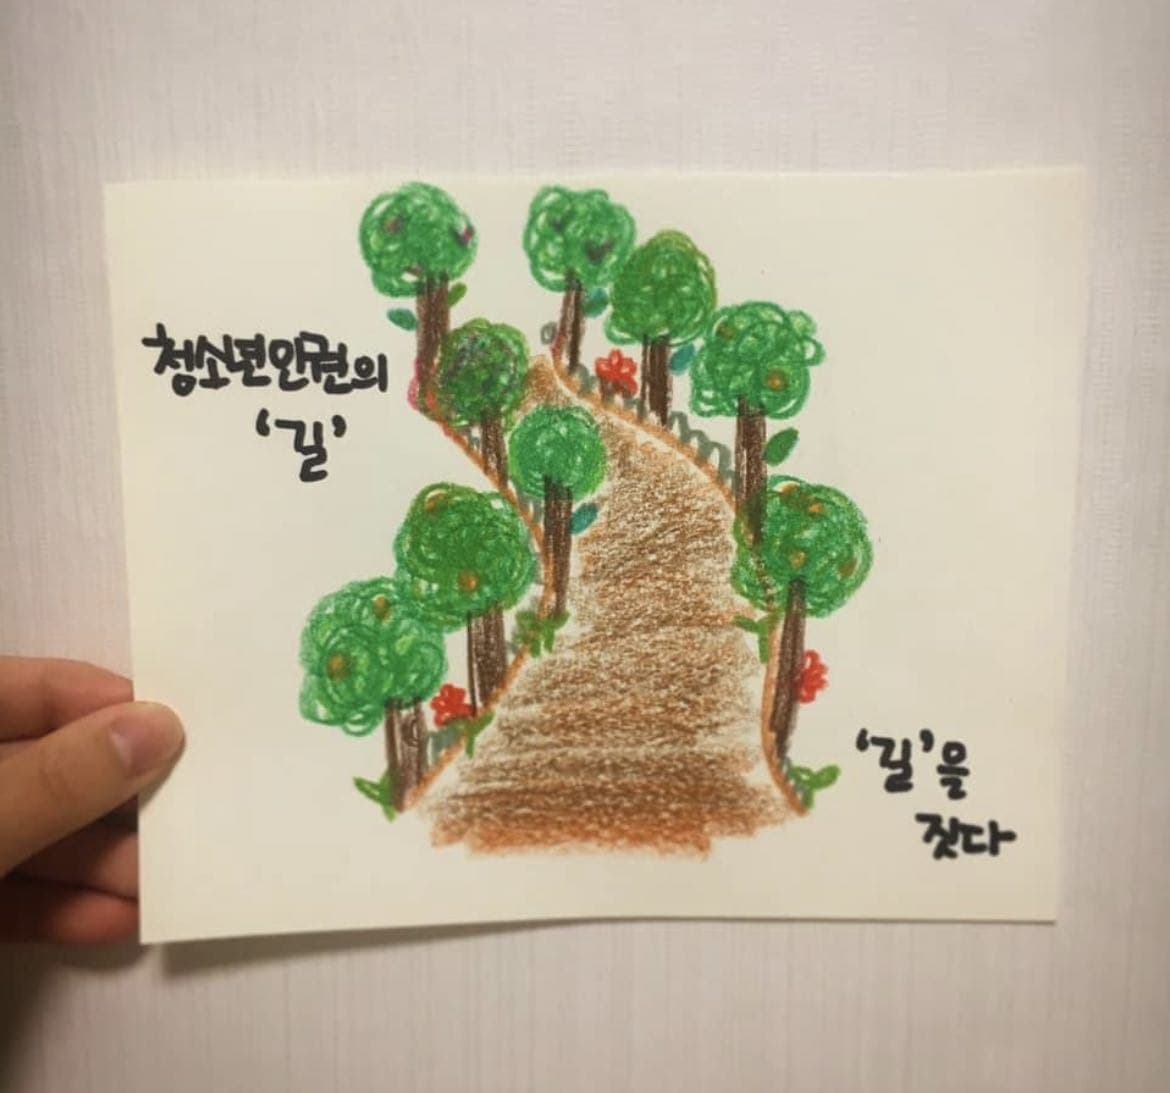 청소년인권의
‘길’
‘길’을
짓다